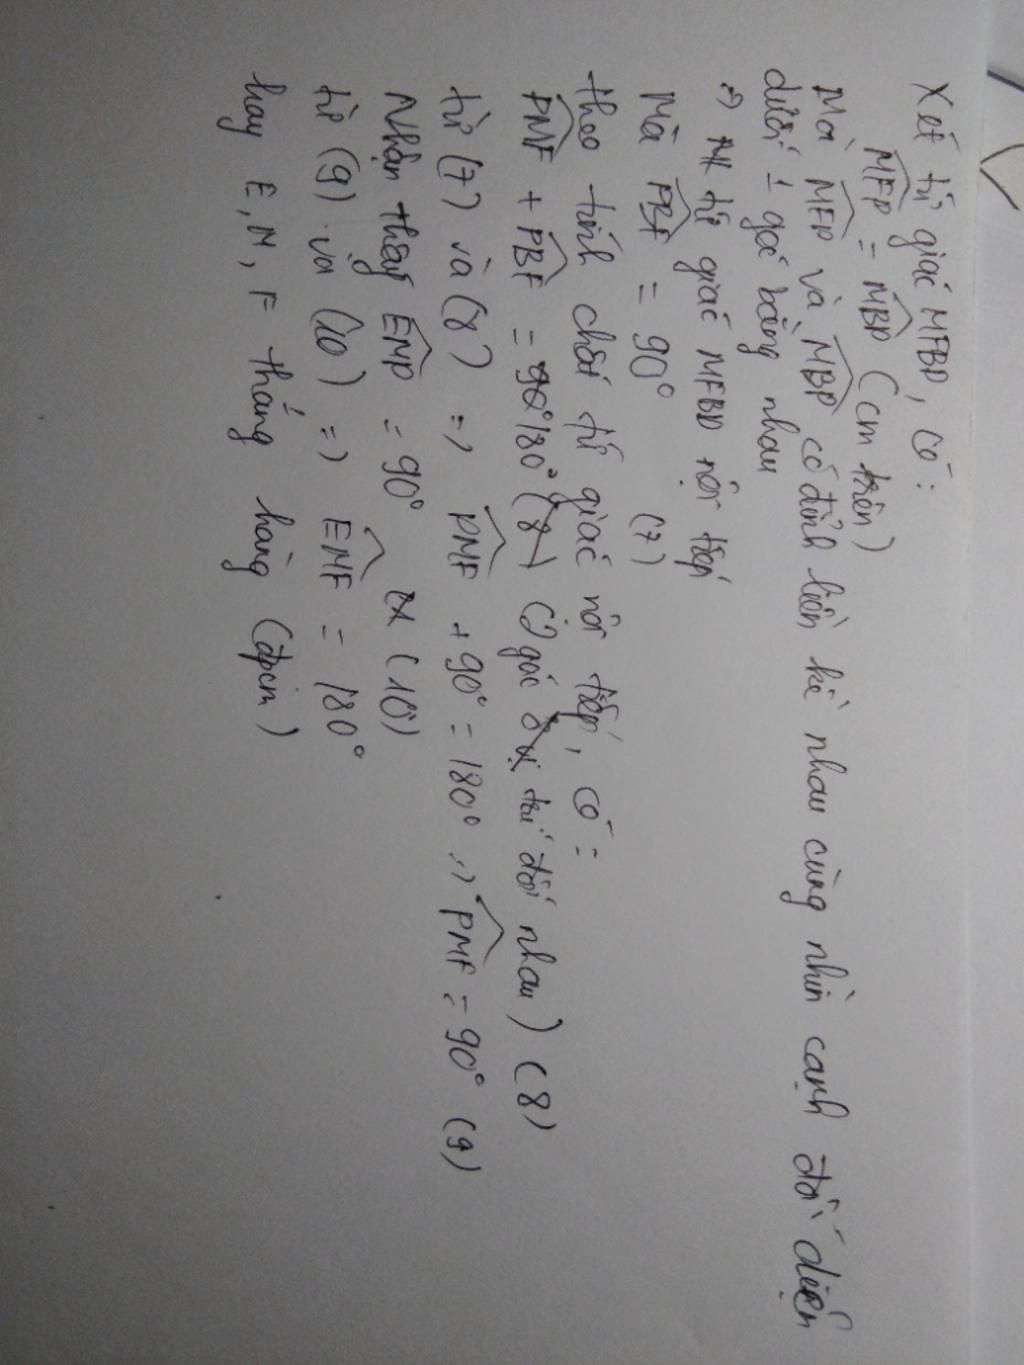 Xét tứ giác MFBP, có:
MFP = MBP (cm trên)
Mà MFP và MBP có đỉnh liền kề nhau cùng nhìn cạnh đối diện
dưới 1 góc bằng nhau
=> tứ giác MFBP nội tiếp
Mà PBF = 90° (7)
theo tính chất tứ giác nội tiếp, có:
PMF + PBF = 180° (2 góc vị trí đối nhau) (8)
từ (7) và (8) => PMF + 90° = 180° => PMF = 90° (9)
Nhận thấy EMP = 90° (10)
từ (9) và (10) => EMF = 180°
hay E, M, F thẳng hàng (đpcm)